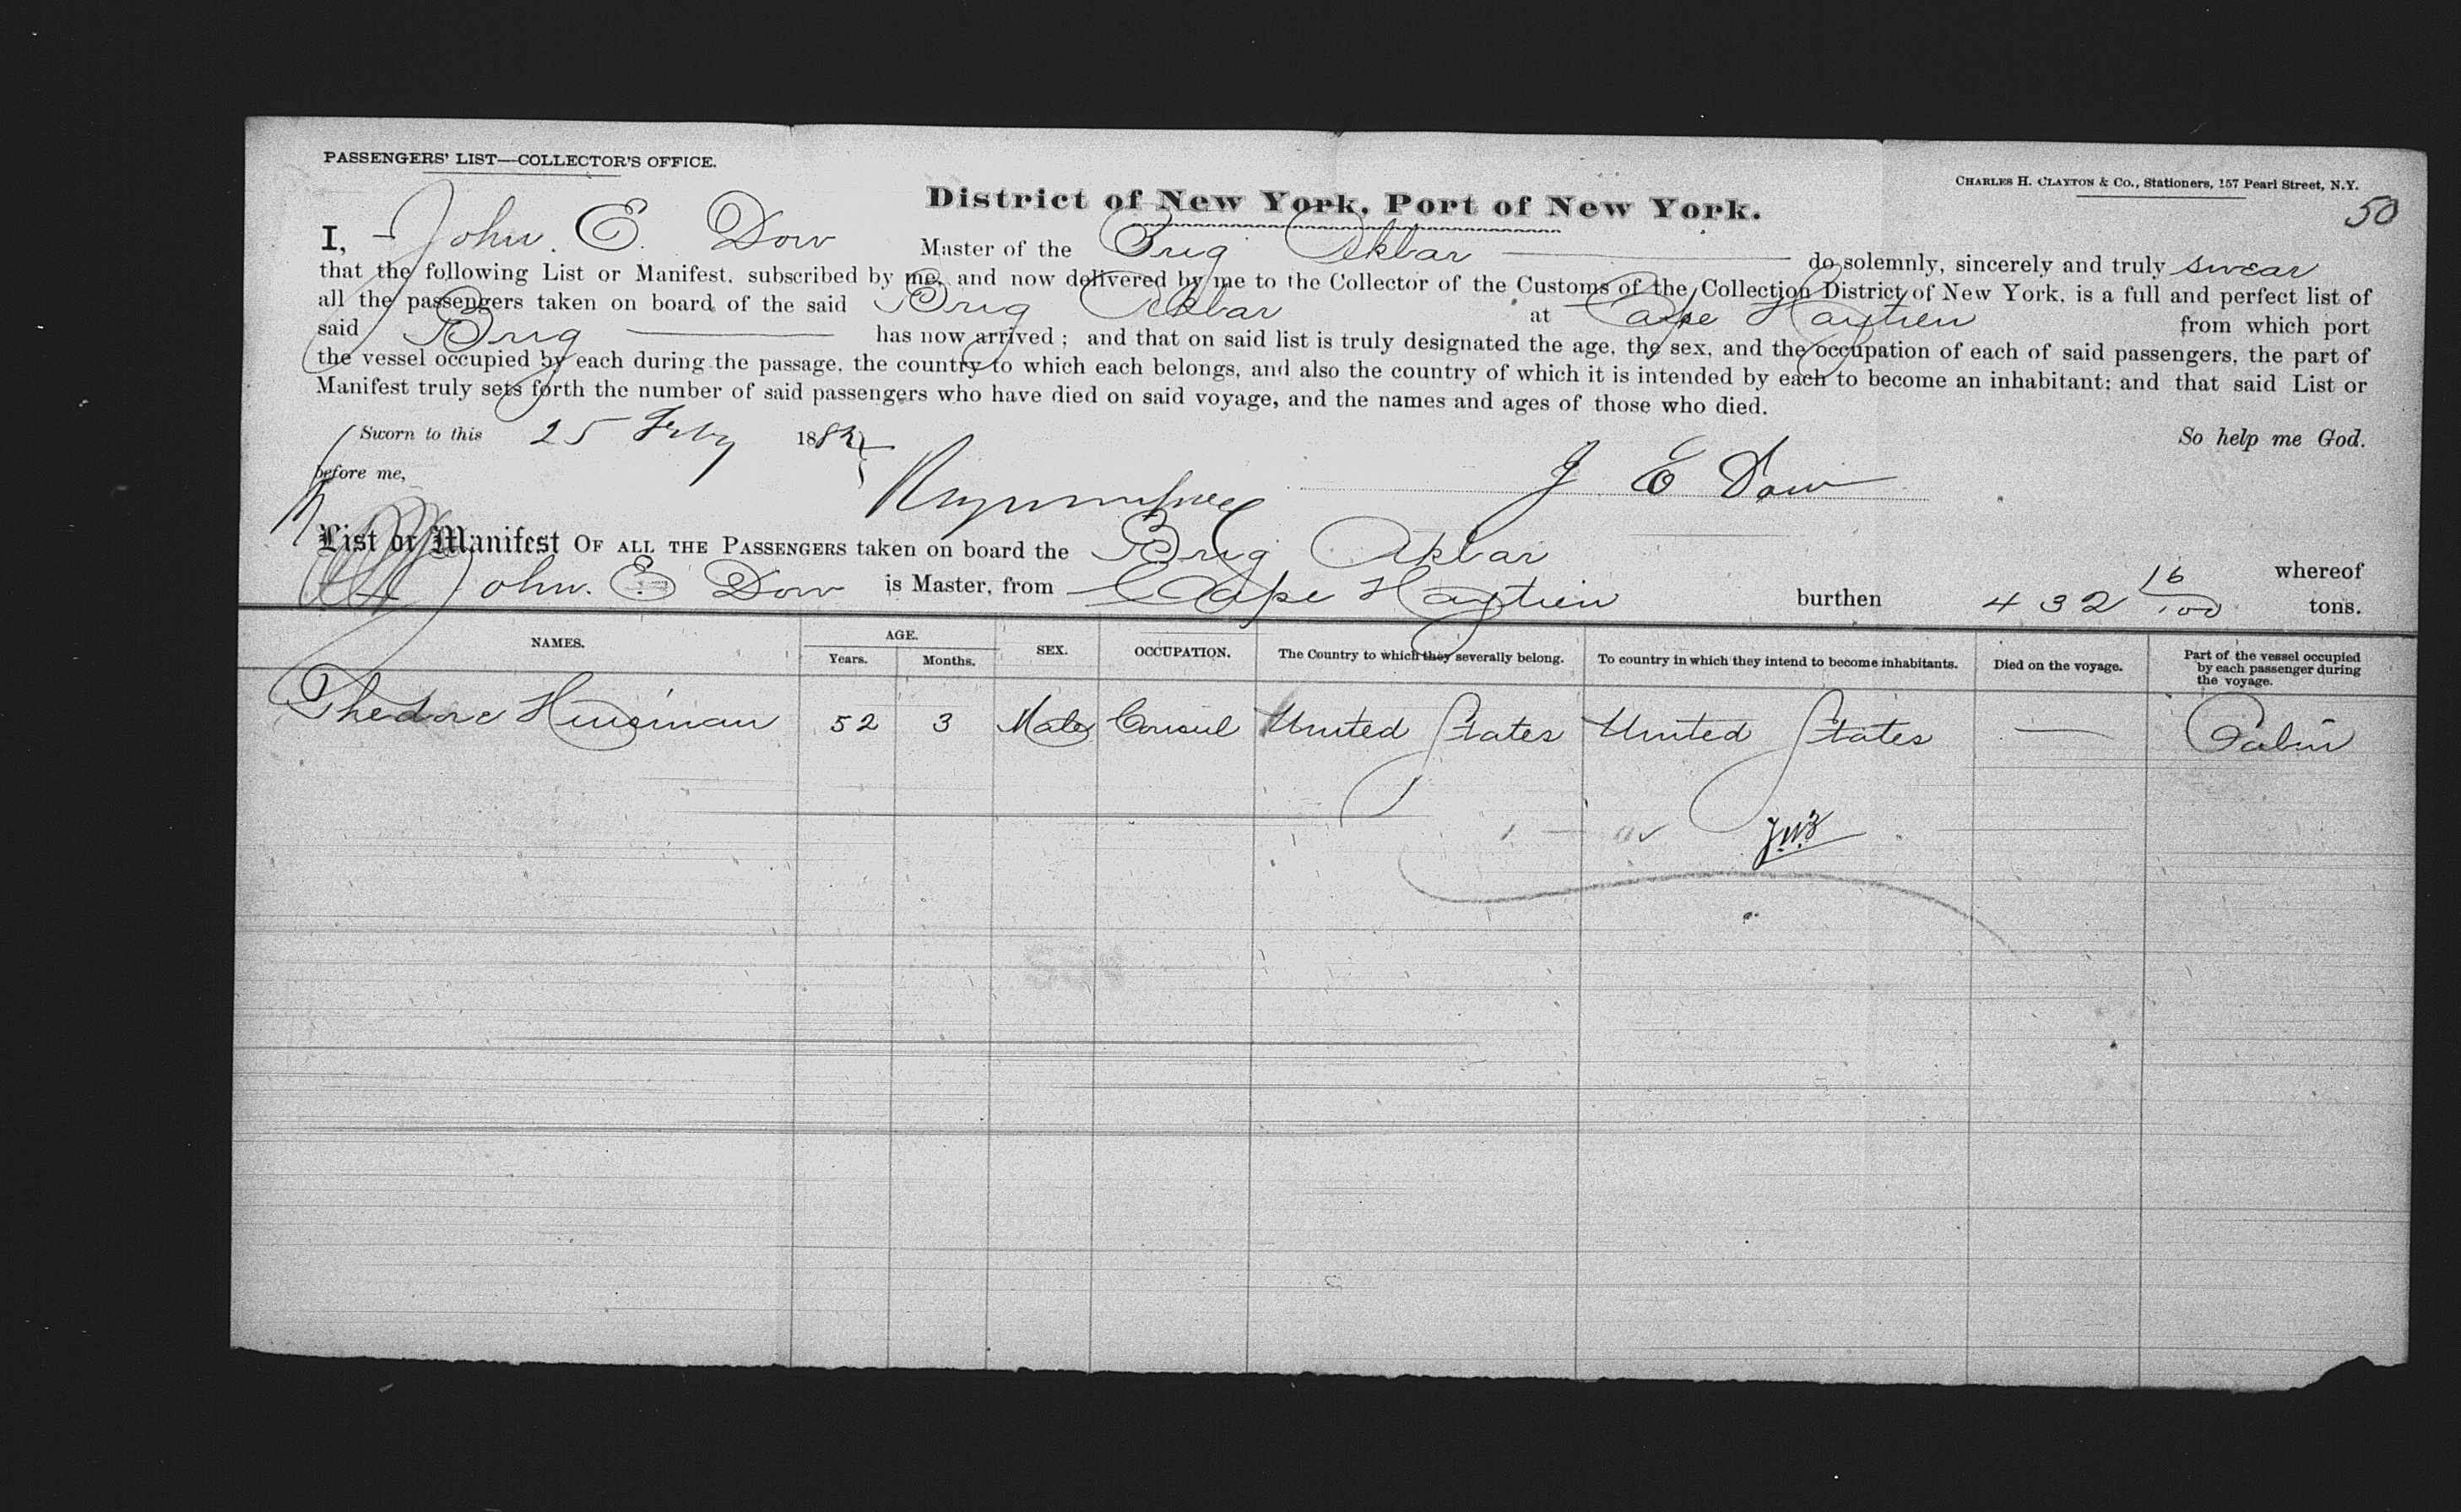 PASSENGERS' LIST—COLLECTOR'S OFFICE.
CHARLES H. CLAYTON & Co., Stationers, 157 Pearl Street, N.Y.
50
District of New York, Port of New York.
I, John. E. Dow Master of the Brig Akbar do solemnly, sincerely and truly swear
that the following List or Manifest, subscribed by me, and now delivered by me to the Collector of the Customs of the Collection District of New York, is a full and perfect list of
all the passengers taken on board of the said Brig Akbar at Cape Haytien from which port
said Brig has now arrived; and that on said list is truly designated the age, the sex, and the occupation of each of said passengers, the part of
the vessel occupied by each during the passage, the country to which each belongs, and also the country of which it is intended by each to become an inhabitant; and that said List or
Manifest truly sets forth the number of said passengers who have died on said voyage, and the names and ages of those who died.
Sworn to this 25 Feby 188 So help me God.
before me, J E Dow
List or Manifest OF ALL THE PASSENGERS taken on board the Brig Akbar whereof
John. E Dow is Master, from Cape Haytien burthen 432 16/100 tons.
NAMES. AGE. Years. Months. SEX. OCCUPATION. The Country to which they severally belong. To country in which they intend to become inhabitants. Died on the voyage. Part of the vessel occupied by each passenger during the voyage.
Thedore 52 3 Male Consul United States United States — Cabin